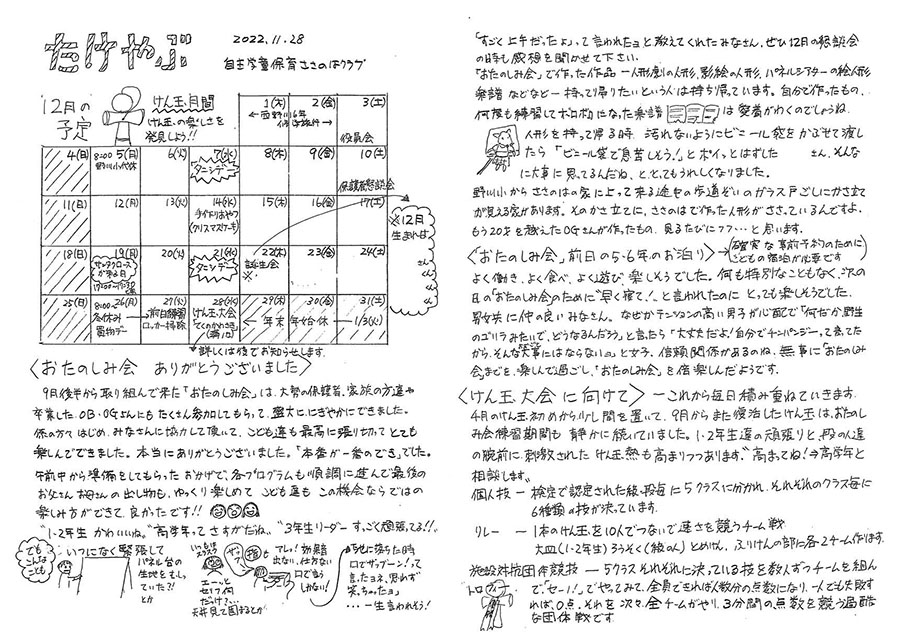 たけやぶ
2022.11.28
自主学童保育ささのはクラブ
12月の
予定
けん玉月間
けん玉の楽しさを
発見しよう!!
1(木)
2(金)
3(土)
役員会
4(日)
5(月)
6(火)
7(水)
タニシデー
8(木)
9(金)
10(土)
保護者懇談会
11(日)
12(月)
13(火)
14(水)
手作りおやつ
(クリスマスケーキ)
15(木)
16(金)
17(土)
※12月
生まれは
18(日)
19(月)
サンタクロース
が来る日
20(火)
21(水)
タニシデー
22(木)
誕生会
※
23(金)
24(土)
25(日)
8:00〜26(月)
冬休み
27(火)
ロッカー掃除
28(水)
けん玉大会
29(木)
30(金)
31(土)
←年末
年始休
→1/3(火)
詳しくは後でお知らせします。
〈おたのしみ会 ありがとうございました〉
9月後半から取り組んで来た「おたのしみ会」は、大勢の保護者、家族の方達や
卒業したOB・OGさんにもたくさん参加してもらって、盛大ににぎやかにできました。
係の方をはじめ、みなさんに協力して頂いて、こども達も最高に張り切ってとても
楽しんでできました。本当にありがとうございました。「本番が一番のでき」でした。
午前中から準備をしてもらったおかげで、各プログラムも順調に進んで最後の
お父さんお母さんの出し物も、ゆっくり楽しめて こども達も この機会ならではの
楽しみ方ができて、良かったです!!
"1・2年生 かわいいね" "高学年って さすがだね" "3年生リーダー すっごく頑張ってる!!"
でも
こんな
ことも
いつになく緊張して
パネル台の
生地をむしっ
ていた?!
とか
エーッと
セリフ何
だっけ?…
天井見て困するとか
口で言う
しかない!
「すごく上手だったよ」って言われたョと教えてくれたみなさん、ぜひ12月の懇談会
の時も感想を聞かせて下さい。
「おたのしみ会」で作った作品ー人形劇の人形、影絵の人形、パネルシアターの絵人形
楽譜などなどー持って帰りたいという人は持ち帰っています。自分で作ったもの、
何度も練習してボロボロになった楽譜
は愛着がわくのでしょうね。
人形を持って帰る時、汚れないようにビニール袋をかぶせて渡し
たら「ビニール袋で息苦しそう!」とポイッとはずした
さん。そんな
に大事に思ってるんだね、ととてもうれしくなりました。
野川小からささのはの家によって来る途中の歩道ぞいのガラス戸ごしにかさ立て
が見える家があります。そのかさ立てに、ささのはで作った人形がささっているんですよ。
もう20才を越えたOGさんが作ったもの、見るたびにフフ…と思います。
〈おたのしみ会、前日の5・6年のお泊り〉→(確実な事前予約のために
こどもの宿泊が必要です)
よく働き、よく食べ、よく遊び、楽しそうでした。何も特別なこともなく、次の
日の「おたのしみ会」のために"早く寝て!"と言われたのに とっても楽しそうでした。
男女共に仲の良いみなさん。なぜかテンションの高い男子が心配で「何だか野生
のゴリラみたいで、どうなるんだろう」と言ったら「大丈夫だよ!自分でチンパンジーって言ってた
から、そんな大事にはならないョ」と女子。信頼関係があるのね。無事に「おたのしみ
会」までを、楽しんで過ごし、「おたのしみ会」を倍楽しんだようです。
〈けん玉大会に向けて〉ーこれから毎日積み重ねていきます。
4月のけん玉初めから少し間を置いて、9月からまた復活したけん玉は、おたのし
み会練習期間も 静かに続いていました。1・2年生達の頑張りと、段の人達
の腕前に刺激されたけん玉熱も高まりつつあります。"高まってね!"の高学年と
相談します。
個人技 ー 検定で認定された級、段毎に5クラスに分かれ、それぞれのクラス毎に
6種類の技が決っています。
リレー ー 1本のけん玉を10人でつないで速さを競うチーム戦
大皿(1・2年生)ろうそく(級の人)とめけん、ふりけんの部に各2チーム作ります。
施設対抗団体競技 ー 5クラスそれぞれに決っている技を数人ずつチームを組ん
で、"セーノ!"でやってみて、全員できれば人数分の点数になり、一人でも失敗す
れば0点。それを次々、全チームがやり、3分間の点数を競う過酷
な団体戦です。